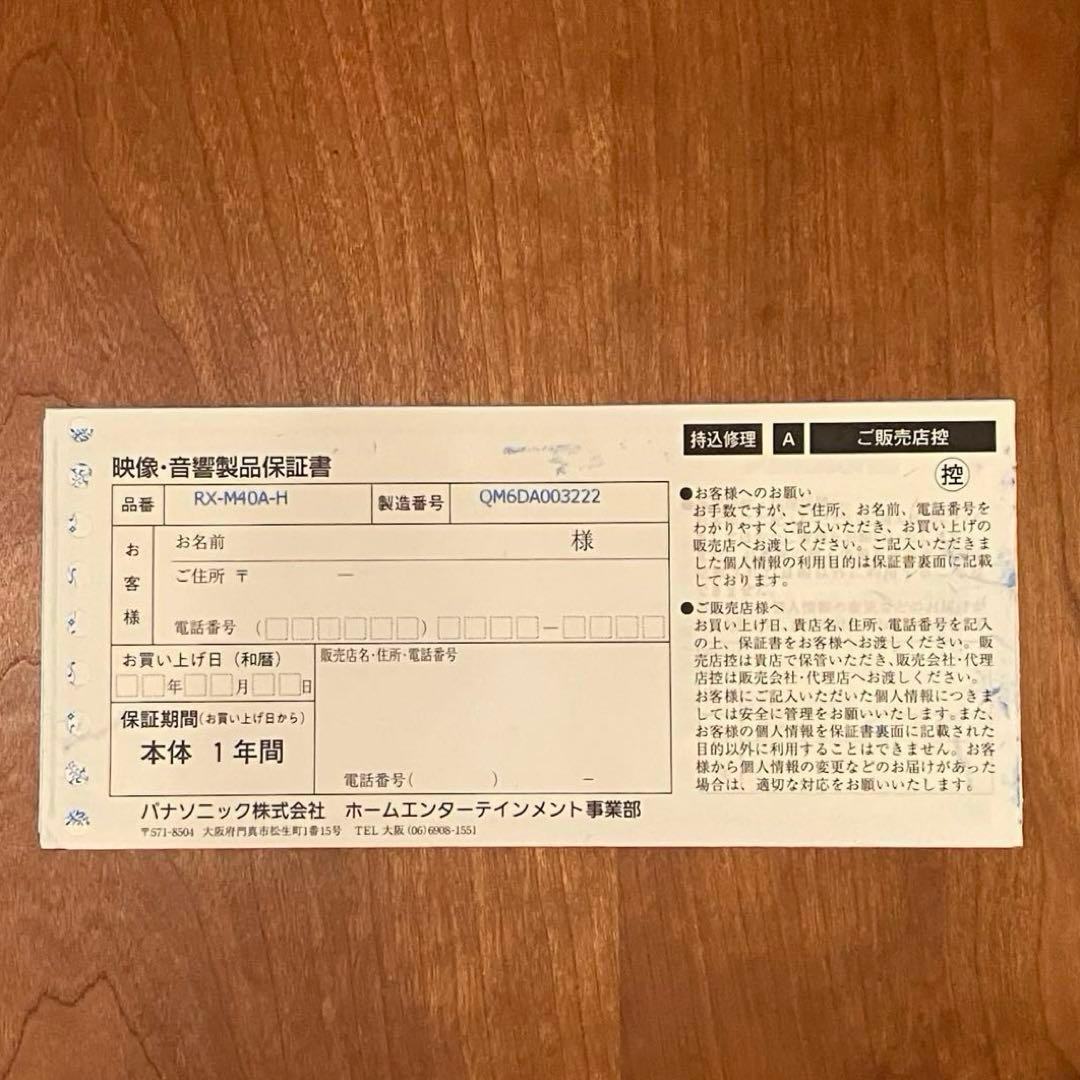 持込修理 A ご販売店控
控
映像・音響製品保証書
品番 RX-M40A-H 製造番号 QM6DA003222
お客様
お名前 様
ご住所 〒 ー
電話番号 ( ) ー
お買い上げ日(和暦)
年 月 日
保証期間(お買い上げ日から)
本体 1年間
販売店名・住所・電話番号
電話番号( ) ー
パナソニック株式会社 ホームエンターテインメント事業部
〒571-8504 大阪府門真市松生町1番15号 TEL 大阪 (06)6908-1551
●お客様へのお願い
お手数ですが、ご住所、お名前、電話番号を
わかりやすくご記入いただき、お買い上げの
販売店へお渡しください。ご記入いただきま
した個人情報の利用目的は保証書裏面に記載
しております。
●ご販売店様へ
お買い上げ日、貴店名、住所、電話番号を記入
の上、保証書をお客様へお渡しください。販
売店控は貴店で保管いただき、販売会社・代理
店控は販売会社・代理店へお渡しください。
お客様にご記入いただいた個人情報につきま
しては安全に管理をお願いいたします。また、
お客様の個人情報を保証書裏面に記載された
目的以外に利用することはできません。お客
様から個人情報の変更などのお届けがあった
場合は、適切な対応をお願いいたします。